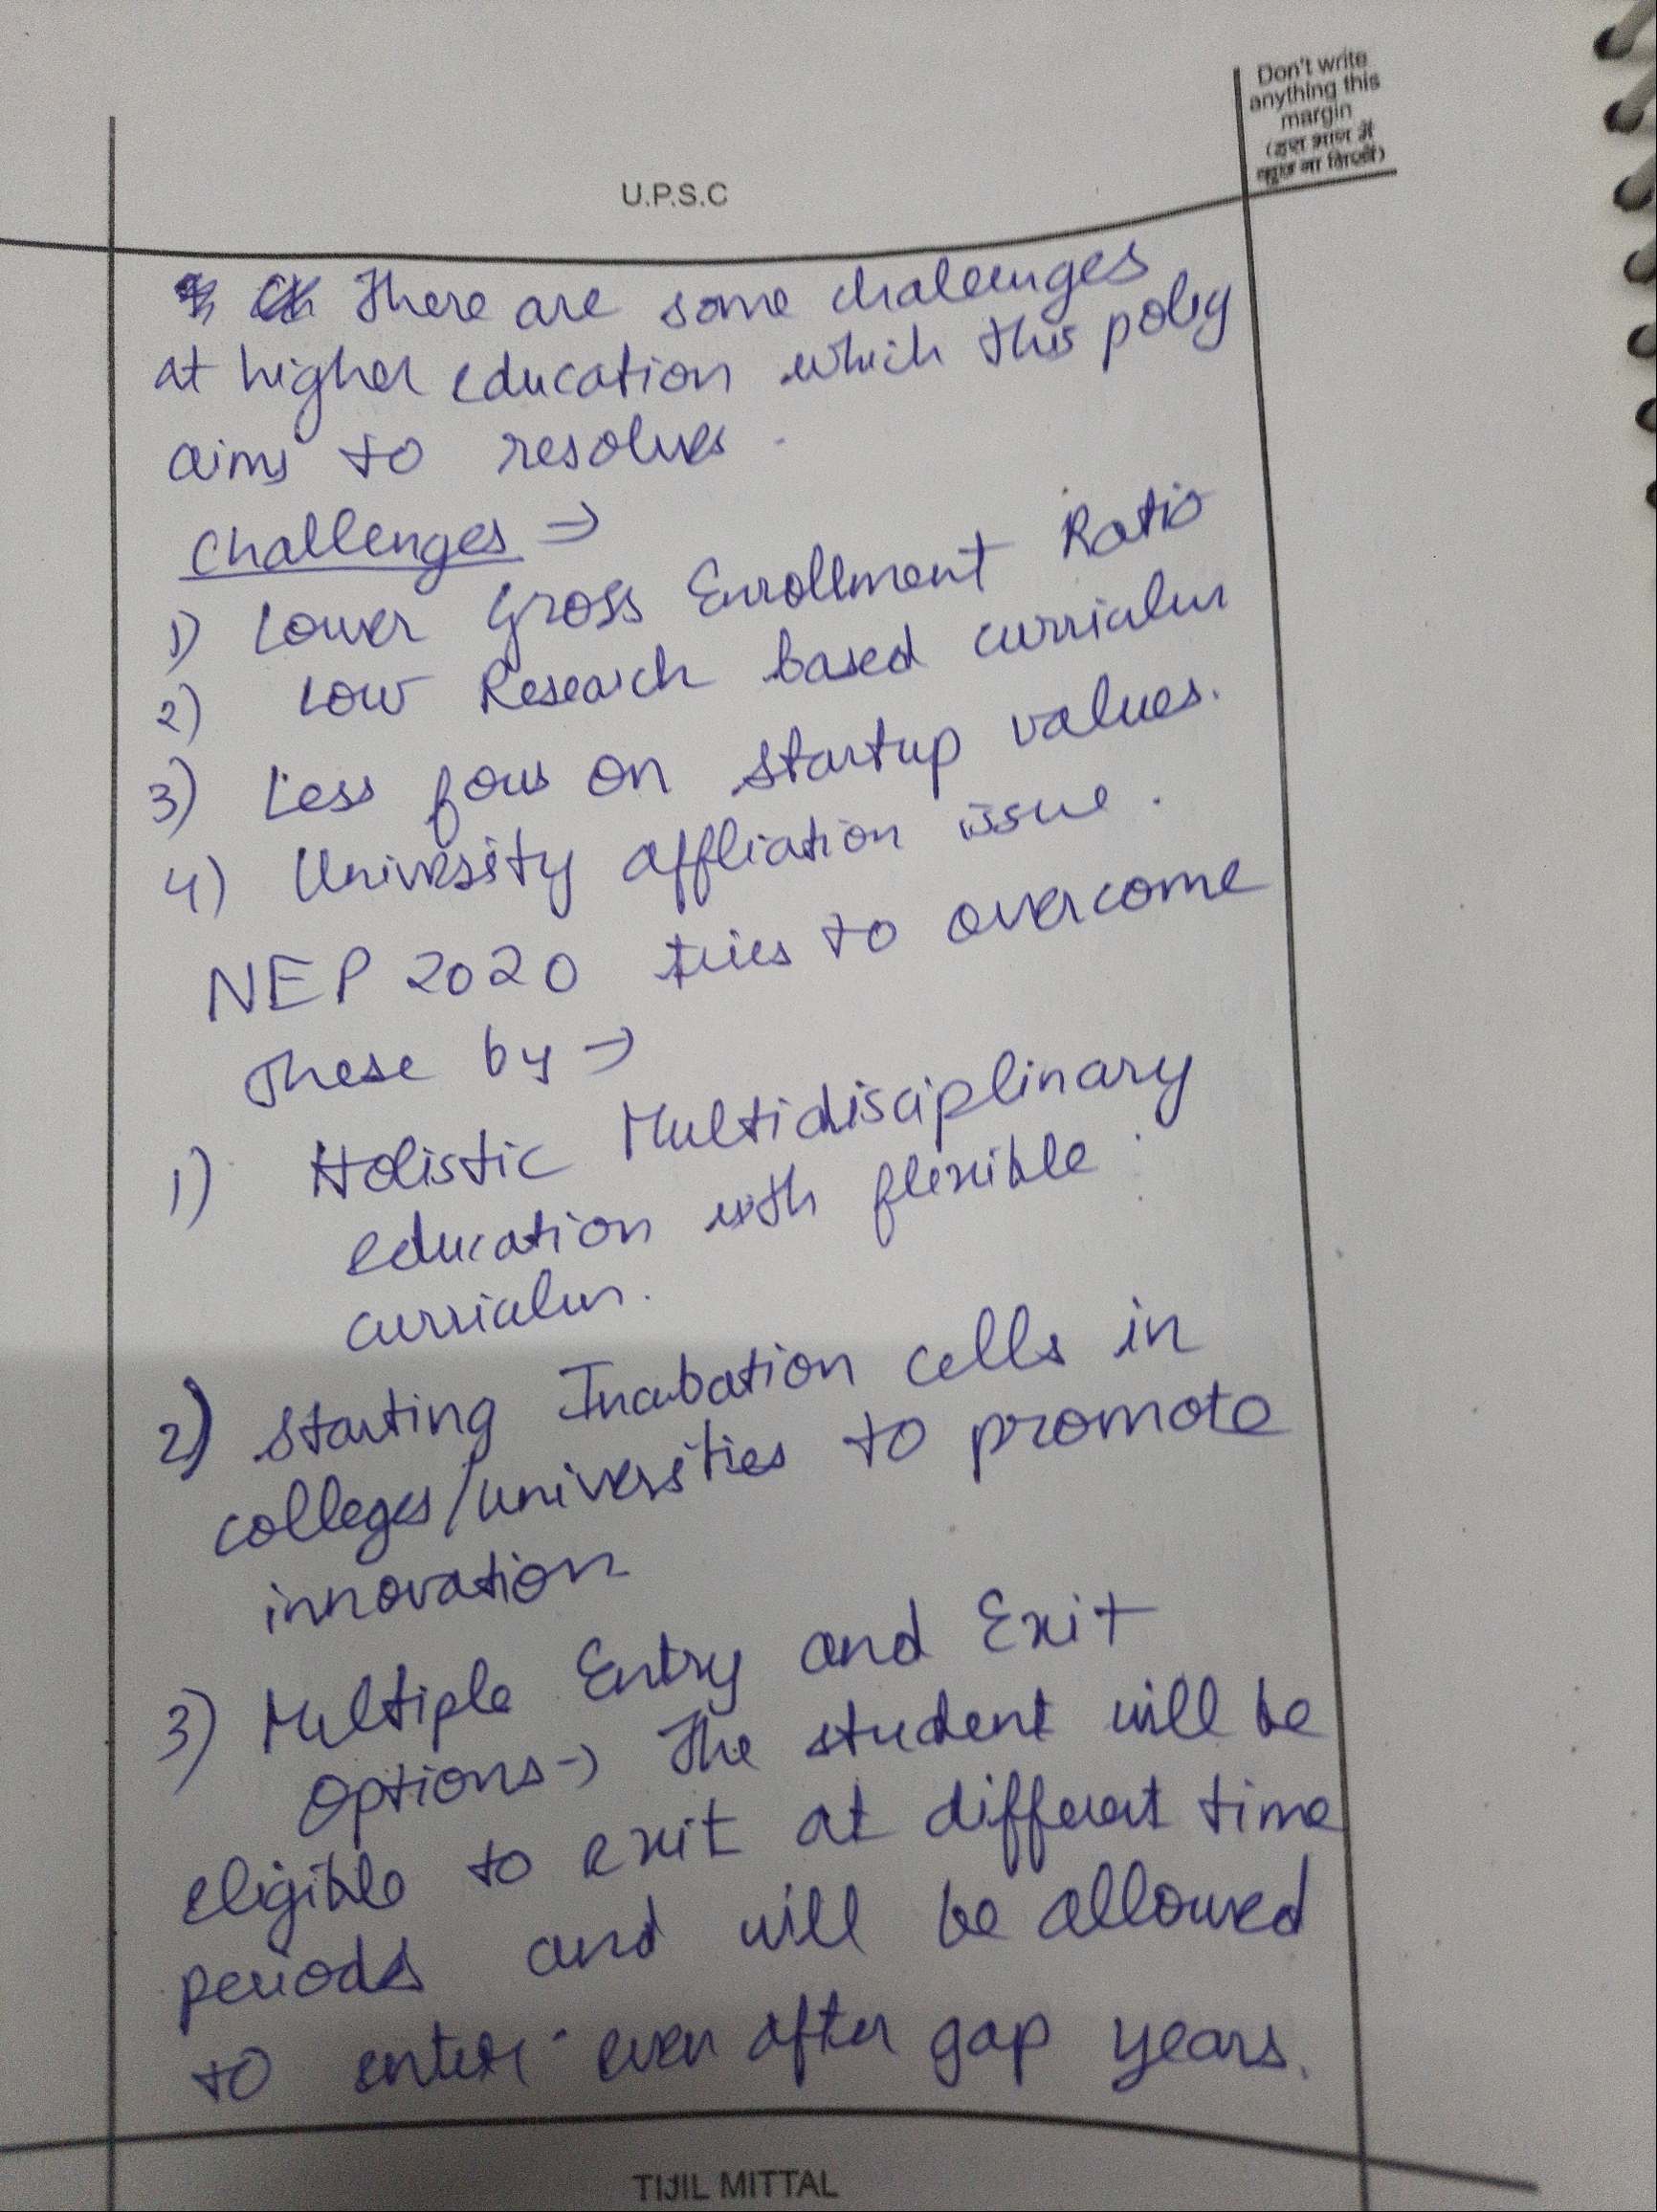 Don't write
anything this
margin
(इस भाग में
कुछ ना लिखें)
U.P.S.C
There are some challenges
at higher education which this policy
aims to resolves.
Challenges ⇒
1) Lower Gross Enrollment Ratio
2) Low Research based curriculum
3) Less focus on startup values.
4) University affliation issue.
NEP 2020 tries to overcome
These by →
1) Holistic Multidisciplinary
education with flexible
curriculum.
2) Starting Incubation cells in
colleges/universities to promote
innovation
3) Multiple Entry and Exit
Options → The student will be
eligible to exit at different time
periods and will be allowed
to enter even after gap years.
TIJIL MITTAL